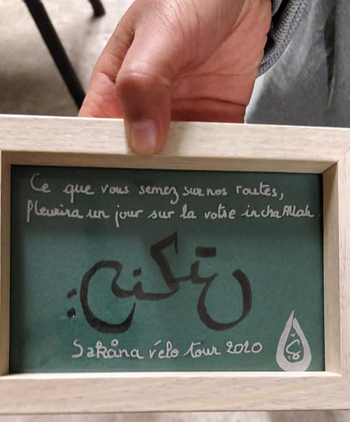 Ce que vous semez sur nos routes,
fleurira un jour sur la votre inchaAllah
Sakåna vélo tour 2020